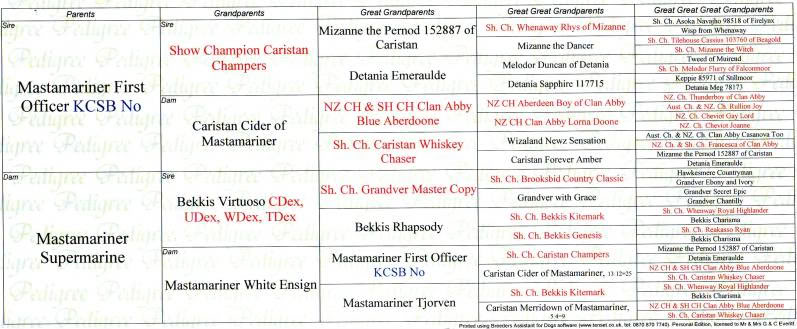 Parents
Grandparents
Great Grandparents
Great Great Grandparents
Great Great Great Grandparents
Sire
Mastamariner First
Officer KCSB No
Dam
Mastamariner
Supermarine
Sire
Show Champion Caristan
Champers
Dam
Caristan Cider of
Mastamariner
Sire
Bekkis Virtuoso CDex,
UDex, WDex, TDex
Dam
Mastamariner White Ensign
Mizanne the Pernod 152887 of
Caristan
Detania Emeraulde
NZ CH & SH CH Clan Abby
Blue Aberdoone
Sh. Ch. Caristan Whiskey
Chaser
Sh. Ch. Grandver Master Copy
Bekkis Rhapsody
Mastamariner First Officer
KCSB No
Mastamariner Tjorven
Sh. Ch. Whenaway Rhys of Mizanne
Mizanne the Dancer
Melodor Duncan of Detania
Detania Sapphire 117715
NZ CH Aberdeen Boy of Clan Abby
NZ CH Clan Abby Lorna Doone
Wizaland Newz Sensation
Caristan Forever Amber
Sh. Ch. Brooksbid Country Classic
Grandver with Grace
Sh. Ch. Bekkis Kitemark
Sh. Ch. Bekkis Genesis
Sh. Ch. Caristan Champers
Caristan Cider of Mastamariner, 13:12=25
Sh. Ch. Bekkis Kitemark
Caristan Merridown of Mastamariner,
5:4=9
Sh. Ch. Asoka Navajho 98518 of Firelynx
Wisp from Whenaway
Sh. Ch. Tilehouse Cassius 103760 of Beagold
Sh. Ch. Mizanne the Witch
Tweed of Muirend
Sh. Ch. Melodor Flurry of Falconmoor
Keppie 85971 of Stillmoor
Detania Meg 78173
NZ. Ch. Thunderboy of Clan Abby
Aust. Ch. & NZ. Ch. Rullion Joy
NZ. Ch. Cheviot Gay Lord
NZ. Ch. Cheviot Joanne
Aust. Ch. & NZ. Ch. Clan Abby Casanova Too
NZ. Ch. & Sh. Ch. Francesca of Clan Abby
Mizanne the Pernod 152887 of Caristan
Detania Emeraulde
Hawkesmere Countryman
Grandver Ebony and Ivory
Grandver Secret Epic
Grandver Chantilly
Sh. Ch. Whenway Royal Highlander
Bekkis Charisma
Sh. Ch. Reakasso Ryan
Bekkis Charisma
Mizanne the Pernod 152887 of Caristan
Detania Emeraulde
NZ CH & SH CH Clan Abby Blue Aberdoone
Sh. Ch. Caristan Whiskey Chaser
Sh. Ch. Whenway Royal Highlander
Bekkis Charisma
NZ CH & SH CH Clan Abby Blue Aberdoone
Sh. Ch. Caristan Whiskey Chaser
Printed using Breeders Assistant for Dogs software (www.tenset.co.uk, tel: 0870 870 7740). Personal Edition, licensed to Mr & Mrs G & C Everitt.